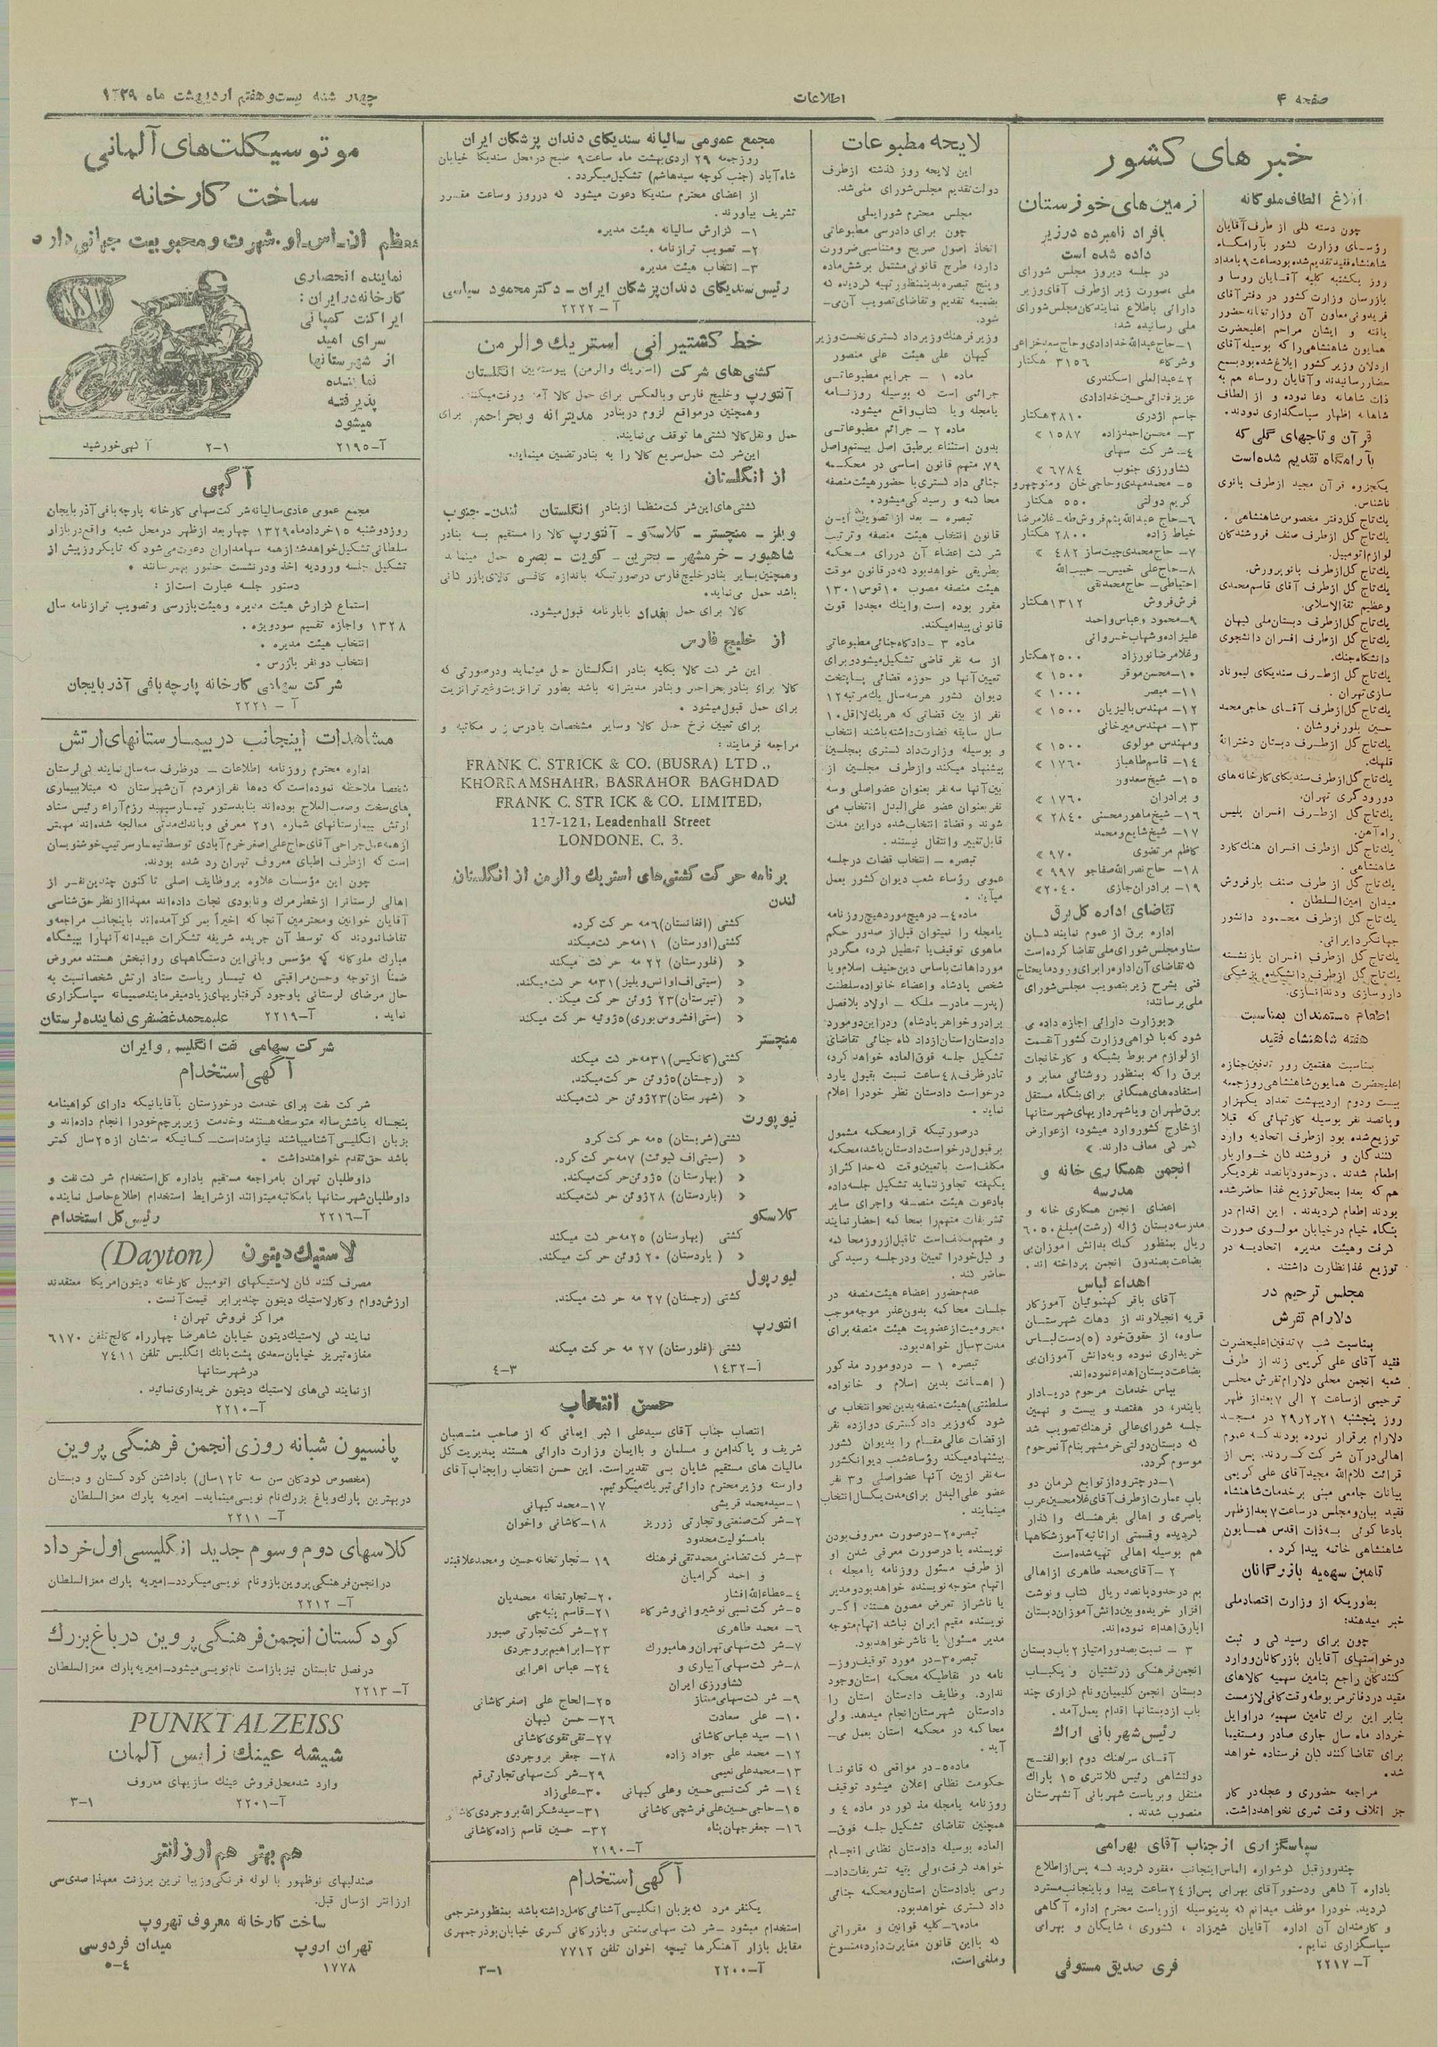 صفحه ۴
اطلاعات
چهارشنبه بیست و هفتم اردیبهشت ماه ۱۳۲۹
خبرهای کشور
ابلاغ الطاف ملوکانه
چون دسته گلی از طرف آقایان
رؤسای وزارت کشور بآرامگاه
شاهنشاه فقید تقدیم شده بود ساعت ۹ بامداد
روز یکشنبه کلیه آقایان روسا و
بازرسان وزارت کشور در دفتر آقای
فریدونی معاون آن وزارتخانه حضور
یافته و ایشان مراحم اعلیحضرت
همایون شاهنشاهی را که بوسیله آقای
اردلان وزیر کشور ابلاغ شده بود بسمع
حضار رسانیدند و آقایان روساء هم به
ذات شاهانه دعا نموده و از الطاف
شاهانه اظهار سپاسگذاری نمودند.
قرآن و تاجهای گلی که
بآرامگاه تقدیم شده است
یکجزوه قرآن مجید از طرف بانوی
ناشناس.
یک تاج گل دفتر مخصوص شاهنشاهی.
یک تاج گل از طرف صنف فروشندگان
لوازم اتومبیل.
یک تاج گل از طرف بانو پرورش.
یک تاج گل از طرف آقای قاسم محمدی
و عظیم ثقةالاسلامی.
یک تاج گل از طرف دبستان ملی کیهان
یک تاج گل از طرف افسران دانشجوی
دانشگاه جنگ.
یک تاج گل از طرف سندیکای لیموناد
سازی تهران.
یک تاج گل از طرف آقای حاجی محمد
حسین بلور فروشان.
یک تاج گل از طرف دبستان دخترانه
قلهک.
یک تاج گل از طرف سندیکای کارخانه های
درودگری تهران.
یک تاج گل از طرف افسران پلیس
راه آهن.
یک تاج گل از طرف افسران هنگ گارد
شاهنشاهی.
یک تاج گل از طرف صنف بارفروش
میدان امین السلطان.
یک تاج گل از طرف محمود دانشور
جهانگرد ایرانی.
یک تاج گل از طرف افسران بازنشسته
یک تاج گل از طرف دانشکده پزشکی
داروسازی و دندانسازی.
اطعام مستمندان بمناسبت
هفته شاهنشاه فقید
بمناسبت هفتمین روز تدفین جنازه
اعلیحضرت همایون شاهنشاهی روز جمعه
بیست و دوم اردیبهشت تعداد یکهزار
و پانصد نفر بوسیله کارتهائی که قبلا
توزیع شده بود از طرف اتحادیه وارد
کنندگان و فروشندگان خواربار
اطعام شدند. در حدود پانصد نفر دیگر
هم که بعدا بمحل توزیع غذا حاضر شده
بودند اطعام گردیدند. این اقدام در
بنگاه خیام در خیابان مولوی صورت
گرفت و هیئت مدیره اتحادیه در
توزیع غذا نظارت داشتند.
مجلس ترحیم در
دلارام تفرش
بمناسبت شب ۷ تدفین اعلیحضرت
فقید آقای علی کریمی زند از طرف
شعبه انجمن محلی دلارام تفرش مجلس
ترحیمی از ساعت ۲ الی ۷ بعد از ظهر
روز پنجشنبه ۲۹/۲/۲۱ در مسجد
دلارام برقرار نموده بودند که عموم
اهالی در آن شرکت کردند. پس از
قرائت کلام الله مجید آقای علی کریمی
بیانات جامعی مبنی بر خدمات شاهنشاه
فقید بیان و مجلس در ساعت ۷ بعد از ظهر
با دعا گوئی به ذات اقدس همایون
شاهنشاهی خاتمه پیدا کرد.
تامین سهمیه بازرگانان
بطوریکه از وزارت اقتصاد ملی
خبر میدهند:
چون برای رسیدگی و ثبت
درخواستهای آقایان بازرگانان وارد
کنندگان راجع بتامین سهمیه کالاهای
مقید در دفاتر مربوطه وقت کافی لازمست
بنابراین برگ تامین سهمیه در اوایل
خرداد ماه سال جاری صادر و مستقیما
برای تقاضا کنندگان فرستاده خواهد
شد.
مراجعه حضوری و عجله در کار
جز اتلاف وقت ثمری نخواهد داشت.
زمین های خوزستان
بافراد نامبرده در زیر
داده شده است
در جلسه دیروز مجلس شورای
ملی صورت زیر از طرف آقای وزیر
دارائی باطلاع نمایندگان مجلس شورای
ملی رسانیده شد:
۱- حاج عبدالله خدادادی و حاج سعد خزاعی
و شرکاء ۳۱۵۶ هکتار
۲- عبدالعلی اسکندری
عزیز فدائی حسین خدادادی
جاسم اژدری ۲۸۱۰ هکتار
۳- محسن احمدزاده ۱۵۸۷ »
۴- شرکت سهامی
کشاورزی جنوب ۶۷۸۴ »
۵- محمد مهدی و حاجی خان و منوچهر و
کریم دولتی ۵۵۰ هکتار
خیاط زاده ۲۸۰۰ هکتار
۷- حاج محمدی چیت ساز ۴۸۲ »
۸- حاج علی خمیس - حبیب الله
احتیاطی - حاج محمد تقی
فرش فروش ۱۳۱۲ هکتار
۹- محمود و عباس و احمد
علیزاده و شهاب خسروانی
و غلامرضا نورزاد ۲۵۰۰ هکتار
۱۰- محسن موقر ۱۵۰۰ »
۱۱- مبصر ۱۰۰۰ »
۱۲- مهندس بالیزبان ۱۵۰۰ »
۱۳- مهندس میرخانی
و مهندس مولوی ۱۵۰۰ »
۱۴- قاسم طاهباز ۱۷۶۰ »
۱۵- شیخ سعدور
و برادران ۱۷۶۰ »
۱۶- شیخ ماهور محسنی ۲۸۴۰ »
۱۷- شیخ شایع و محمد
کاظم مرتضوی ۹۷۰ »
۱۸- حاج نصرالله صفاجو ۹۹۷ »
۱۹- برادران جازی ۲۰۴۰ »
تقاضای اداره کل برق
اداره برق از عموم نمایندگان
سنا و مجلس شورای ملی تقاضا کرده است
که تقاضای آن اداره را برای ورود مایحتاج
فنی بشرح زیر بتصویب مجلس شورای
ملی برسانند:
«بوزارت دارائی اجازه داده می
شود که با گواهی وزارت کشور آنقسمت
از لوازم مربوط بشبکه و کارخانجات
برق را که بمنظور روشنائی معابر و
استفاده های همگانی برای بنگاه مستقل
برق طهران و یا شهرداریهای شهرستانها
از خارج کشور وارد میشود، از عوارض
گمرکی معاف دارند.»
انجمن همکاری خانه و
مدرسه
اعضای انجمن همکاری خانه و
مدرسه دبستان ژاله (رشت) مبلغ ۶۰۵۰
ریال بمنظور کمک بدانش آموزان بی
بضاعت بصندوق انجمن پرداخته اند.
اهداء لباس
آقای باقر کهنموئیان آموزگار
قریه انجیلاوند از دهات شهرستان
ساوه، از حقوق خود (۵) دست لباس
خریداری نموده و به دانش آموزان بی
بضاعت دبستان اهداء نموده اند.
بپاس خدمات مرحوم دریادار
بایندر، در هفتصد و بیست و نهمین
جلسه شورای عالی فرهنگ تصویب شد
که دبستان دولتی خرمشهر بنام آن مرحوم
موسوم گردد.
۱- در چترود از توابع کرمان دو
باب عمارت از طرف آقای غلامحسین عرب
یاصری و اهالی بفرهنگ واگذار
گردیده و قسمتی از اثاثیه آموزشگاهها
هم بوسیله اهالی تهیه شده است
۲- آقای محمد طاهری از اهالی
بم در حدود پانصد ریال کتاب و نوشت
افزار خریده و بین دانش آموزان دبستان
ابارق اهداء نموده اند.
۳- نسبت بصدور امتیاز ۲ باب دبستان
انجمن فرهنگی زرتشتیان و یکباب
دبستان انجمن کلیمیان و نام گزاری چند
باب از دبستانها اقدام بعمل آمد.
رئیس شهربانی اراک
آقای سرهنگ دوم ابوالفتح
دولتشاهی رئیس کلانتری ۱۵ باراک
منتقل و بریاست شهربانی آنشهرستان
منصوب شدند.
سپاسگزاری از جناب آقای بهرامی
چند روز قبل گوشواره الماس اینجانب مفقود گردید که پس از اطلاع
باداره آگاهی و دستور آقای بهرامی پس از ۲۴ ساعت پیدا و باینجانب مسترد
گردید. خود را موظف میدانم که بدینوسیله از ریاست محترم اداره آگاهی
و کارمندان آن اداره آقایان شیرزاد، کشوری، شایگان و بهرامی
سپاسگزاری نمایم.
آ-۲۲۱۷ فری صدیق مستوفی
لایحه مطبوعات
این لایحه روز گذشته از طرف
دولت تقدیم مجلس شورای ملی شد.
مجلس محترم شورایملی
چون برای دادرسی مطبوعاتی
اتخاذ اصول صریح و متناسبی ضرورت
دارد، طرح قانونی مشتمل بر شش ماده
و پنج تبصره بدینمنظور تهیه گردیده که
بضمیمه تقدیم و تقاضای تصویب آن می-
شود.
وزیر فرهنگ وزیر دادگستری نخست وزیر
کیهان علی هیئت علی منصور
ماده ۱- جرایم مطبوعاتی
جرائمی است که بوسیله روزنامه
یا مجله و یا کتاب واقع میشود.
ماده ۲- جرائم مطبوعاتی
بدون استثناء بر طبق اصل بیستم و اصل
۷۹، متمم قانون اساسی در محکمه
جنائی دادگستری با حضور هیئت منصفه
محاکمه و رسیدگی میشود.
تبصره - بعد از تصویب این
قانون انتخاب هیئت منصفه و ترتیب
شرکت اعضاء آن در رای محکمه
بطریقی خواهد بود که در قانون موقت
هیئت منصفه مصوب ۱۰ قوس ۱۳۰۱
مقرر بوده است و اینک مجددا قوت
قانونی پیدا میکند.
ماده ۳- دادگاه جنائی مطبوعاتی
از سه نفر قاضی تشکیل میشود و برای
تعیین آنها در حوزه قضائی پایتخت
دیوان کشور هر سه سال یک مرتبه ۱۲
نفر از بین قضاتی که هر یک لااقل ۱۰
سال سابقه قضاوت داشته باشند انتخاب
و بوسیله وزارت دادگستری بمجلسین
پیشنهاد میکند و از طرف مجلسین از
بین آنها سه نفر بعنوان عضو اصلی و سه
نفر بعنوان عضو علی البدل انتخاب می
شوند و قضاة انتخاب شده در این مدت
قابل تغییر و انتقال نیستند.
تبصره - انتخاب قضات در جلسه
عمومی رؤساء شعب دیوان کشور بعمل
میآید.
ماده ۴- در هیچ مورد هیچ روزنامه
یا مجله را نمیتوان قبل از صدور حکم
ماهوی توقیف یا تعطیل کرد؛ مگر در
مورد اهانت باساس دین حنیف اسلام و یا
شخص پادشاه و اعضاء خانواده سلطنت
(پدر- مادر- ملکه - اولاد بلافصل
برادر و خواهر پادشاه) و در این دو مورد
دادستان استان از دادگاه جنائی تقاضای
تشکیل جلسه فوق العاده خواهد کرد،
تا در ظرف ۴۸ ساعت نسبت بقبول یا رد
درخواست دادستان نظر خود را اعلام
نماید.
در صورتیکه قرار محکمه مشمول
بر قبول درخواست دادستان باشد؛ محکمه
مکلف است با تعیین وقت که حداکثر از
یکهفته تجاوز ننماید تشکیل جلسه داده
با دعوت هیئت منصفه و اجرای سایر
تشریفات متهم را بمحاکمه احضار نمایند
و متهم مکلف است تا قبل از روز محاکمه
وکیل خود را تعیین و در جلسه رسیدگی
حاضر کند.
عدم حضور اعضاء هیئت منصفه در
جلسات محاکمه بدون عذر موجه موجب
محرومیت از عضویت هیئت منصفه برای
مدت ۳ سال خواهد بود.
تبصره ۱- در دو مورد مذکور
(اهانت بدین اسلام و خانواده
سلطنتی) هیئت منصفه بدین نحو انتخاب می
شود که وزیر دادگستری دوازده نفر
از قضات عالی مقام را بدیوان کشور
پیشنهاد میکند رؤساء شعب دیوانکشور
سه نفر از بین آنها عضو اصلی و ۳ نفر
عضو علی البدل برای مدت یکسال انتخاب
مینمایند.
تبصره ۲- در صورت معروف بودن
نویسنده یا در صورت معرفی شدن او
از طرف مسئول روزنامه یا مجله،
اتهام متوجه نویسنده خواهد بود و مدیر
یا ناشر از تعرض مصون هستند؛ اگر
نویسنده مقیم ایران نباشد اتهام متوجه
مدیر مسئول یا ناشر خواهد بود.
تبصره ۳- در مورد توقیف روز-
نامه در نقاطیکه محکمه استان وجود
ندارد، وظایف دادستان استان را
دادستان شهرستان انجام میدهد، ولی
محاکمه در محکمه استان بعمل می-
آید.
ماده ۵- در مواقعی که قانونا
حکومت نظامی اعلان میشود توقیف
روزنامه یا مجله مذکور در ماده ۴ و
همچنین تقاضای تشکیل جلسه فوق-
العاده بوسیله دادستان نظامی انجام
خواهد گرفت، ولی بقیه تشریفات داد-
رسی با دادستان استان و محکمه جنائی
دادگستری خواهد بود.
ماده ۶- کلیه قوانین و مقرراتی
که با این قانون مغایرت دارد؛ منسوخ
و ملغی است.
مجمع عمومی سالیانه سندیکای دندان پزشکان ایران
روز جمعه ۲۹ اردیبهشت ماه ساعت ۹ صبح در محل سندیکا خیابان
شاه آباد (جنب کوچه سید هاشم) تشکیل میگردد.
از اعضای محترم سندیکا دعوت میشود که در روز و ساعت مقرر
تشریف بیاورند.
۱- گزارش سالیانه هیئت مدیره
۲- تصویب ترازنامه.
۳- انتخاب هیئت مدیره
رئیس سندیکای دندان پزشکان ایران - دکتر محمود سیاسی
آ-۲۲۲۲
خط کشتیرانی استریک والرمن
کشتی های شرکت (استریک والرمن) پیوسته بین انگلستان
آنتورپ و خلیج فارس و بالعکس برای حمل کالا آمد و رفت میکند.
و همچنین در مواقع لزوم در بنادر مدیترانه و بحر احمر برای
حمل و نقل کالا کشتی ها توقف می نمایند.
این شرکت حمل سریع کالا را به بنادر تضمین مینماید.
از انگلستان
کشتی های این شرکت منظما از بنادر انگلستان لندن- جنوب
ویلز - منچستر - گلاسکو - آنتورپ کالا را مستقیم به بنادر
شاهپور - خرمشهر - بحرین - کویت - بصره حمل مینماید
و همچنین بسایر بنادر خلیج فارس در صورتیکه باندازه کافی کالای بارگانی
باشد حمل می نماید.
کالا برای حمل بغداد با بارنامه قبول میشود.
از خلیج فارس
این شرکت کالا بکلیه بنادر انگلستان حمل مینماید و در صورتی که
کالا برای بنادر بحر احمر و بنادر مدیترانه باشد بطور ترانزیت و غیر ترانزیت
برای حمل قبول میشود.
برای تعیین نرخ حمل کالا و سایر مشخصات بآدرس زیر مکاتبه و
مراجعه فرمایند:
FRANK C. STRICK & CO. (BUSRA) LTD.,
KHORRAMSHAHR, BASRAHOR BAGHDAD
FRANK C. STR ICK & CO. LIMITED,
117-121, Leadenhall Street
LONDONE. C. 3.
برنامه حرکت کشتی های استریک والرمن از انگلستان
لندن
کشتی (افغانستان) ۶ مه حرکت کرده
کشتی (اورستان) ۱۱ مه حرکت میکند
» (فلورستان) ۲۲ مه حرکت میکند
» (سیتی اف اوانس ویلیز) ۳۱ مه حرکت میکند.
» (تبرستان) ۲۳ ژوئن حرکت میکند.
» (ستی افشروس بوری) ۵ ژوئیه حرکت میکند
منچستر
کشتی (کانکیس) ۳۱ مه حرکت میکند
» (رجستان) ۵ ژوئن حرکت میکند.
» (شهرستان) ۲۳ ژوئن حرکت میکند
نیوپورت
کشتی (شربستان) ۵ مه حرکت کرد
» (سیتی اف لیوئت) ۷ مه حرکت کرد.
» (بهارستان) ۵ ژوئن حرکت میکند.
» (باردستان) ۲۸ ژوئن حرکت میکند
گلاسکو
کشتی (بهارستان) ۲۵ مه حرکت میکند
» (باردستان) ۲۰ ژوئن حرکت میکند.
لیورپول
کشتی (رجستان) ۲۷ مه حرکت میکند.
انتورپ
کشتی (فلورستان) ۲۷ مه حرکت میکند
آ-۱۴۳۲ ۳-۴
حسن انتخاب
انتصاب جناب آقای سید علی اکبر ایمانی که از صاحب منصبان
شریف و پاکدامن و مسلمان و با ایمان وزارت دارائی هستند بمدیریت کل
مالیات های مستقیم شایان بسی تقدیر است. این حسن انتخاب را بجناب آقای
وارسته وزیر محترم دارائی تبریک میگوئیم.
۱- سید محمد قریشی
۲- شرکت صنعتی و تجارتی زرریز
بامسئولیت محدود
۳- شرکت تضامنی محمد تقی فرهنگ
و احمد کرامیان
۴- عطاءالله افشار
۵- شرکت نسبی نوشیروانی و شرکاء
۶- محمد طاهری
۷- شرکت سهامی تهران و هامبورک
۸- شرکت سهامی آبیاری و
کشاورزی ایران
۹- شرکت سهامی ممتاز
۱۰- علی سعادت
۱۱- سید عباس کاشانی
۱۲- محمد علی جواد زاده
۱۳- محمد علی نعیمی
۱۴- شرکت نسبی حسین و علی کیهانی
۱۵- حاجی حسین علی فرشچی کاشانی
۱۶- جعفر جهان پناه
۱۷- محمد کیهانی
۱۸- کاشانی و اخوان
۱۹- تجارتخانه حسین و محمد علاقبند
۲۰- تجارتخانه محمدیان
۲۱- قاسم پنبه چی
۲۲- شرکت تجارتی صبور
۲۳- ابراهیم بروجردی
۲۴- عباس اعرابی
۲۵- الحاج علی اصغر کاشانی
۲۶- حسن کیهان
۲۷- تقی تقوی کاشانی
۲۸- جعفر بروجردی
۲۹- شرکت سهامی تجارتی قم
۳۰- علی زاد
۳۱- سید شکرالله بروجردی کاشانی
۳۲- حسین قاسم زاده کاشانی
آ-۲۱۹۰
آگهی استخدام
یکنفر مرد که بزبان انگلیسی آشنائی کامل داشته باشد بمنظور مترجمی
استخدام میشود - شرکت سهامی صنعتی و بازرگانی کسری خیابان بوذرجمهری
مقابل بازار آهنگرها تیمچه اخوان تلفن ۷۷۱۲
آ-۲۲۰۰ ۱-۳
موتوسیکلت های آلمانی
ساخت کارخانه
معظم ان-اس-او شهرت و محبوبیت جهانی دارد
NSU
نماینده انحصاری
کارخانه در ایران:
ایراکت کمپانی
سرای امید
از شهرستانها
نماینده
پذیرفته
میشود
آ-۲۱۹۵ ۱-۲ آگهی خورشید
آگهی
مجمع عمومی عادی سالیانه شرکت سهامی کارخانه پارچه بافی آذربایجان
روز دوشنبه ۱۵ خرداد ماه ۱۳۲۹ چهار بعد از ظهر در محل شعبه واقع در بازار
سلطانی تشکیل خواهد شد؛ از همه سهامداران دعوت می شود که تا یک روز پیش از
تشکیل جلسه ورودیه اخذ و در نشست حضور بهم رسانند.
دستور جلسه عبارت است از:
استماع گزارش هیئت مدیره و هیئت بازرسی و تصویب ترازنامه سال
۱۳۲۸ و اجازه تقسیم سود ویژه.
انتخاب هیئت مدیره.
انتخاب دو نفر بازرس.
شرکت سهامی کارخانه پارچه بافی آذربایجان
آ-۲۲۲۱
مشاهدات اینجانب در بیمارستانهای ارتش
اداره محترم روزنامه اطلاعات - در ظرف سه سال نمایندگی لرستان
شخصا ملاحظه نموده است که ده ها نفر از مردم آن شهرستان که مبتلا ببیماری
های سخت و صعب العلاج بوده اند بنا بدستور تیمسار سپهبد رزم آراء رئیس ستاد
ارتش ببیمارستانهای شماره ۱ و ۲ معرفی و باندک مدتی معالجه شده اند مهمتر
از همه عمل جراحی آقای حاج علی اصغر خرم آبادی توسط تیمسار سرتیپ خوشنویسان
است که از طرف اطبای معروف تهران رد شده بودند.
چون این مؤسسات علاوه بر وظایف اصلی تا کنون چندین نفر از
اهالی لرستان را از خطر مرگ و نابودی نجات داده اند معهذا از نظر حق شناسی
آقایان خوانین و محترمین آنجا که اخیرا بمرکز آمده اند باینجانب مراجعه و
تقاضا نمودند که توسط آن جریده شریفه تشکرات عبیدانه آنها را ببیشگاه
مبارک ملوکانه که مؤسس و بانی این دستگاههای روانبخش هستند معروض
ضمنا از توجه و حسن مراقبتی که تیمسار ریاست ستاد ارتش شخصا نسبت به
حال مرضای لرستانی با وجود گرفتاریهای زیاد میفرمایند صمیمانه سپاسگزاری
نماید. آ-۲۲۱۹ علیمحمد غضنفری نماینده لرستان
شرکت سهامی نفت انگلیس و ایران
آگهی استخدام
شرکت نفت برای خدمت در خوزستان بآقایانیکه دارای گواهینامه
پنجساله یا شش ساله متوسطه هستند و خدمت زیر پرچم خود را انجام داده اند و
بزبان انگلیسی آشنا میباشند نیازمند است- کسانیکه سنشان از ۲۵ سال کمتر
باشد حق تقدم خواهند داشت.
داوطلبان تهران با مراجعه مستقیم باداره کل استخدام شرکت نفت و
داوطلبان شهرستانها با مکاتبه میتوانند از شرایط استخدام اطلاع حاصل نمایند
آ-۲۲۱۶ رئیس کل استخدام
لاستیک دیتون (Dayton)
مصرف کنندگان لاستیکهای اتومبیل کارخانه دیتون امریکا معتقدند
ارزش دوام و کار لاستیک دیتون چند برابر قیمت آنست.
مراکز فروش تهران:
نمایندگی لاستیک دیتون خیابان شاهرضا چهارراه کالج تلفن ۶۱۷۰
مغازه تبریز خیابان سعدی پشت بانک انگلیس تلفن ۷۴۱۱
در شهرستانها
از نمایندگی های لاستیک دیتون خریداری نمائید.
آ-۲۲۱۰
پانسیون شبانه روزی انجمن فرهنگی پروین
(مخصوص کودکان سن سه تا ۱۲ سال) باداشتن کودکستان و دبستان
در بهترین پارک و باغ بزرگ نام نویسی مینماید- امیریه پارک معزالسلطان
آ-۲۲۱۱
کلاسهای دوم و سوم جدید انگلیسی اول خرداد
در انجمن فرهنگی پروین باز و نام نویسی میگردد- امیریه پارک معزالسلطان
آ-۲۲۱۲
کودکستان انجمن فرهنگی پروین در باغ بزرگ
در فصل تابستان نیز باز است نام نویسی میشود- امیریه پارک معزالسلطان
آ-۲۲۱۳
PUNKTALZEISS
شیشه عینک زایس آلمان
وارد شد محل فروش عینک سازیهای معروف
آ-۲۲۰۱ ۱-۳
هم بهتر هم ارزانتر
صندلیهای نوظهور با لوله فرنگی و زیبا ترین برزنت معهذا صدی سی
ارزانتر از سال قبل.
ساخت کارخانه معروف تهروپ
تهران اروپ میدان فردوسی
۱۷۷۸ ۴-۵